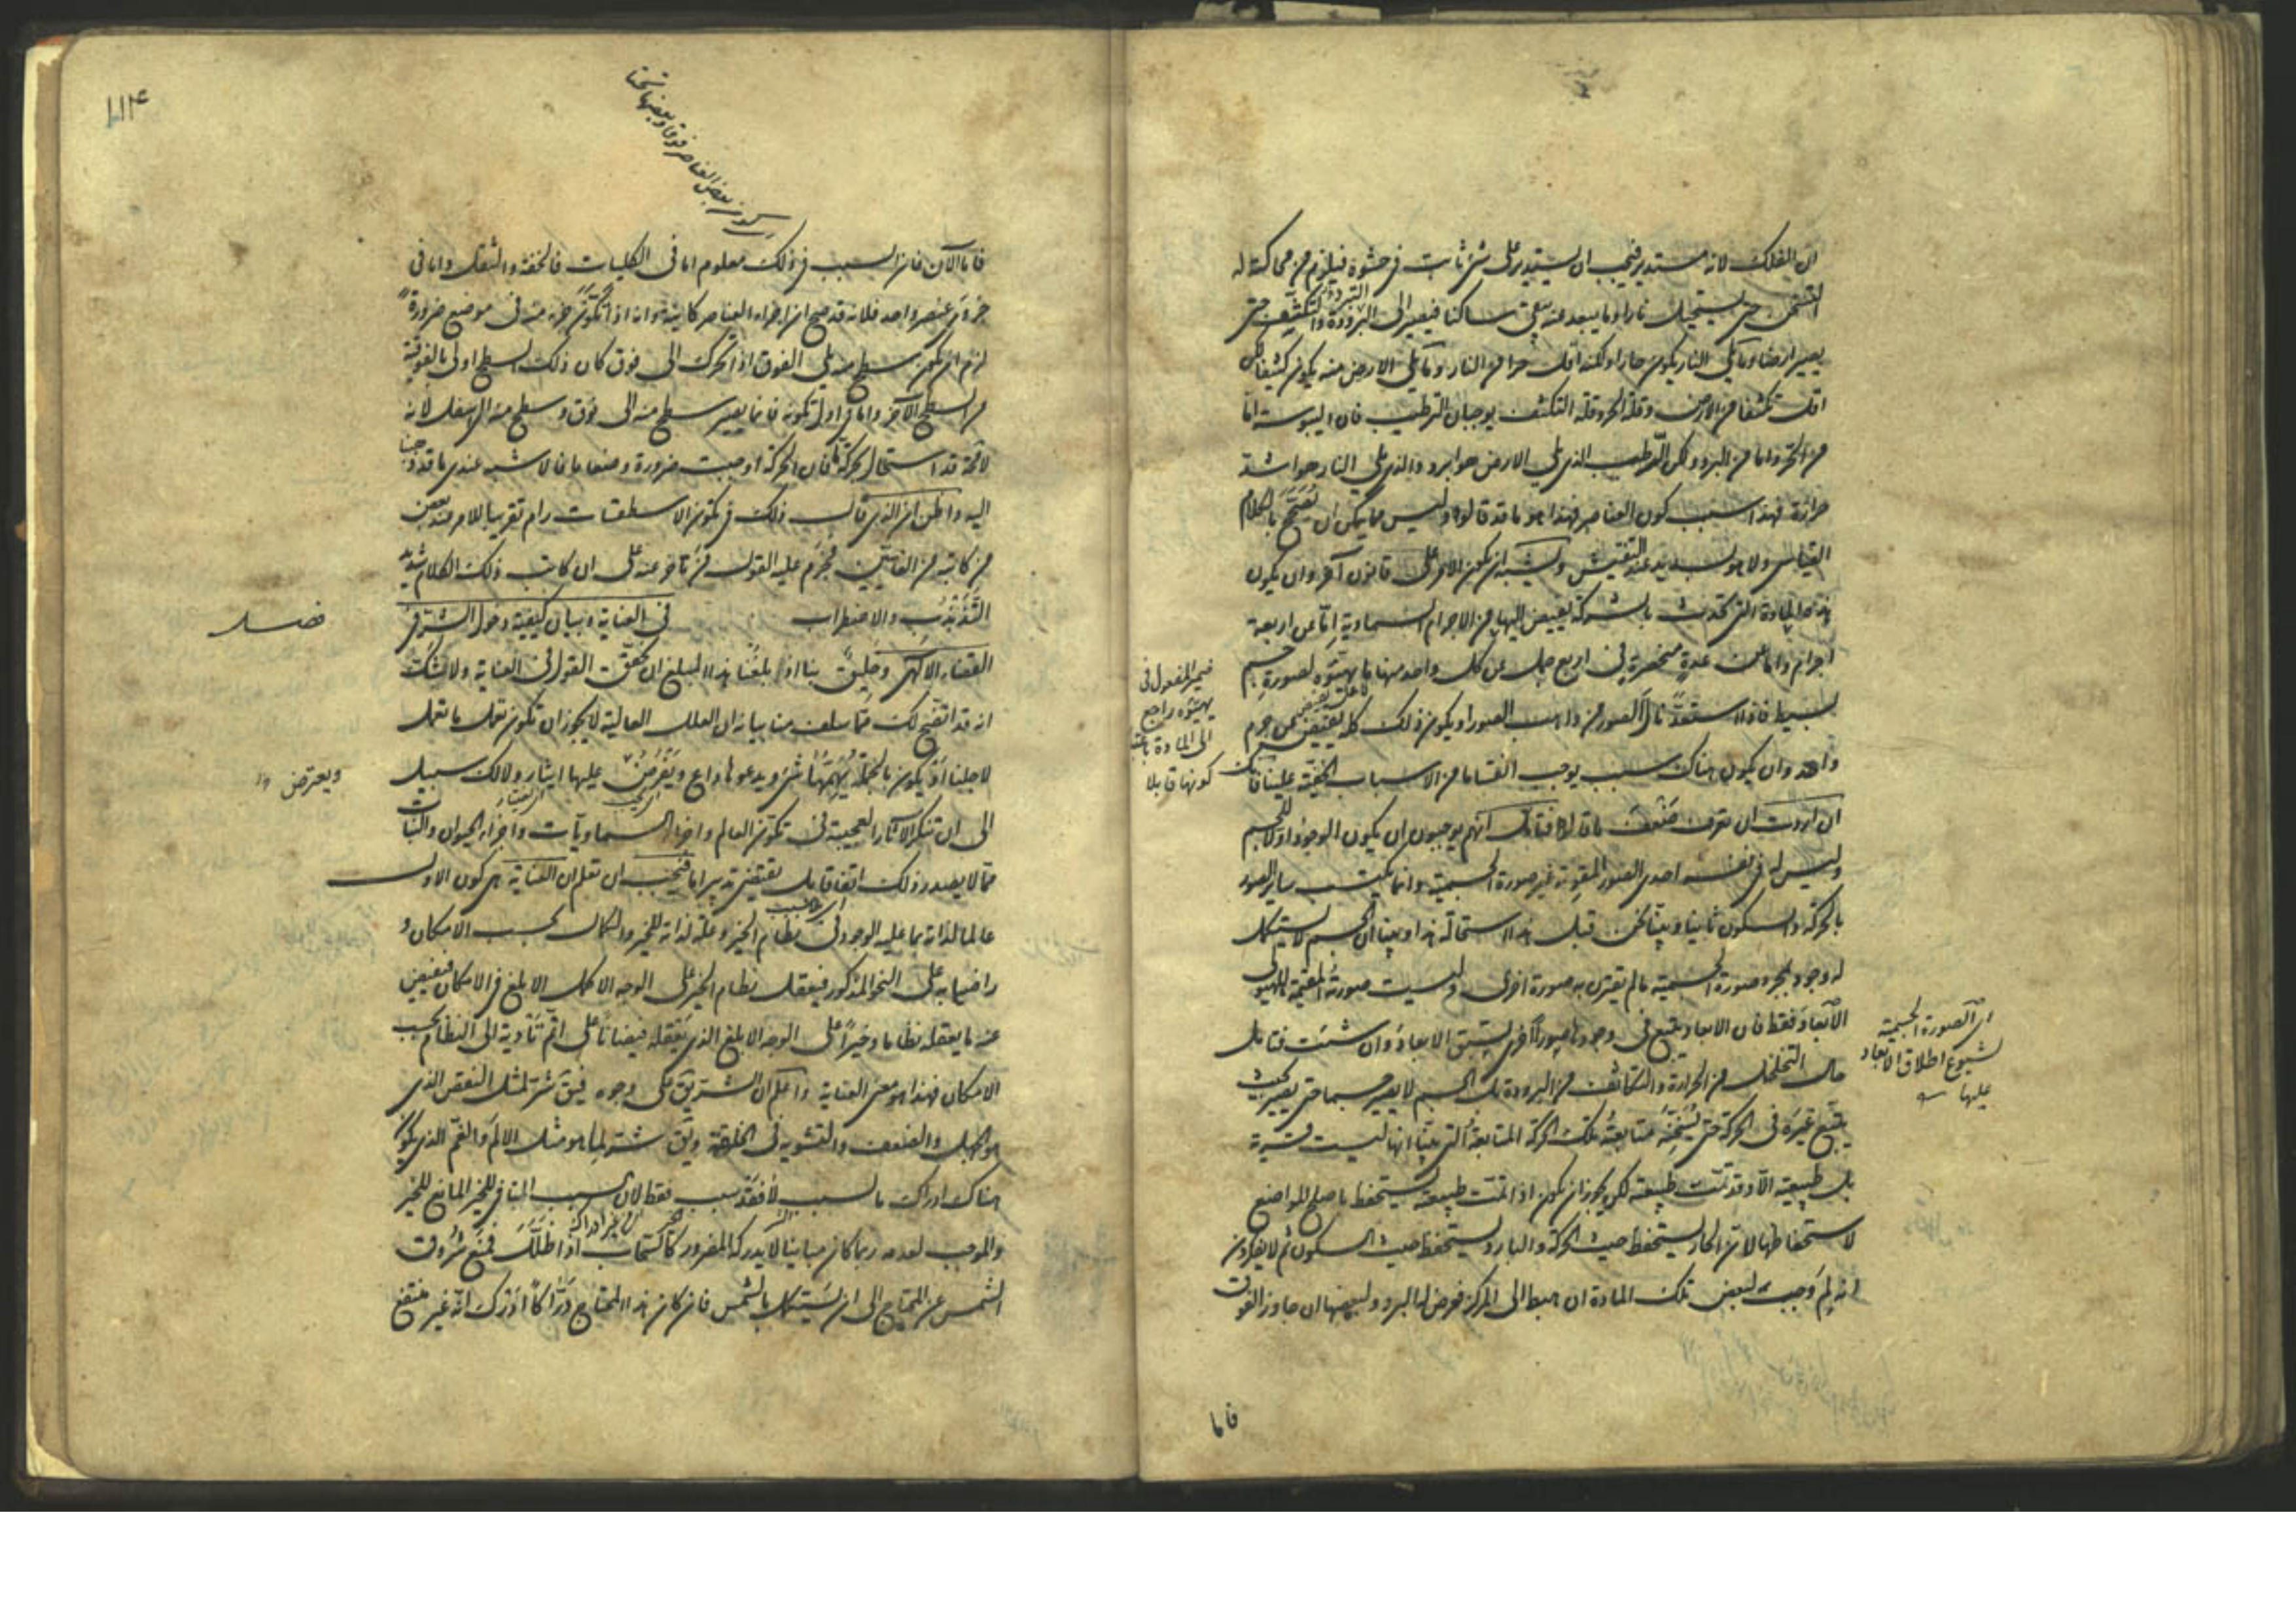 ان الفلك لانه مستدير فيجب ان يستدير على شئ ثابت في حشوه فيلزم من محاكته له
التسخن حتى يستحيل نارا وما يبعد عنه يبقى ساكنا فيصير الى التبرد والتكثف حتى
يصير ارضا وما يلي النار يكون حارا ولكنه اقل حرا من النار وما يلي الارض منه يكون كثيفا لكن
اقل تكثفا من الارض وقلة الحر وقلة التكثف يوجبان الترطيب فان اليبوسة اما
من الحر واما من البرد ولكن الرطب الذي يلي الارض هو ابرد والذي يلي النار هو اشد
حرارة فهذا سبب كون العناصر فهذا هو ما قد قالوه وليس مما يمكن ان يصحح بالكلام
القياسي ولا هو بسديد عند التفتيش ويشبه ان يكون الامر على قانون آخر وان يكون
هذه المادة التي تحدث بالشركة يفيض اليها من الاجرام السماوية اما عن اربعة
اجرام واما عن عدة منحصرة في اربع جمل عن كل واحد منها ما يهيئه لصورة جسم
بسيط فاذا استعد نال الصور من واهب الصور او يكون ذلك كله يفيض عن جرم
واحد وان يكون هناك سبب يوجب انقساما من الاسباب الخفية علينا فانك
ان اردت ان تعرف ضعف ما قالوا فتأمل انهم يوجبون ان يكون الوجود اولا للجسم
وليس له في نفسه احدى الصور المقومة غير صورة الجسمية وانما يكتسب سائر الصور
بالحركة والسكون ثانيا وبينا نحن قبل هذا استحالة هذا وبينا ان الجسم لا يستكمل
له وجود بمجرد صورة الجسمية ما لم يقترن به صورة اخرى وليست صورته المقيمة للهيولى
الابعاد فقط فان الابعاد يتبع في وجودها صورا اخرى تسبق الابعاد وان شئت فتأمل
حال التخلخل من الحرارة والتكاثف من البرودة بل الجسم لا يصير جسما حتى يصير بحيث
يتبع غيره في الحركة حتى يسخنه متابعته تلك الحركة المتابعة التي بينا انها ليست قسرية
بل طبيعية الا وقد تمت طبيعته لكن يجوز ان يكون اذا تمت طبيعته يستحفظ باصلح المواضع
لاستحفاظها لان الحار يستحفظ حيث الحركة والبارد يستحفظ حيث السكون ثم لا يفكرون
انه لم وجب لبعض تلك المادة ان هبط الى المركز فعرض له البرد ولبعضها ان جاور الفوق
ضمير المفعول في
يهيئه راجع
الى المادة باعتبار
كونها قابلا
اي الصورة الجسمية
لشيوع اطلاق الابعاد
عليها
فاما
١١٤
كون بعض العناصر فوقا وبعضها تحتا
فاما الآن فان السبب في ذلك معلوم اما في الكليات فالخفة والثقل واما في
جزء من عنصر واحد فلانه قد صح ان اجزاء العناصر كائنة وانه اذا تكون جزء منه في موضع ضرورة
لزم ان يكون سطح منه يلي الفوق اذا تحرك الى فوق كان ذلك السطح اولى بالفوقية
من السطح الآخر واما في اول تكونه فانما يصير سطح منه الى فوق وسطح منه الى اسفل لانه
لا محالة قد استحال بحركة ما فان الحركة اوجبت ضرورة وضعا ما فالاشبه عندي ما قد ذهبنا
اليه واظن ان الذي قال ذلك في تكون الاسطقسات رام تقريبا للامر عند بعض
من كاتبه من العاميين فجزم عليه القول من تأخر عنه على ان كاتب ذلك الكلام شديد
التذبذب والاضطراب في العناية وبيان كيفية دخول الشر في
فصل
القضاء الالهي وخليق بنا اذا بلغنا هذا المبلغ ان نحقق القول في العناية ولا شك
انه قد اتضح لك مما سلف منا بيانه ان العلل العالية لا يجوز ان تكون تعمل ما تعمل
لاجلنا او يكون بالجملة يهمها شئ ويدعوها داع ويعرض عليها ايثار ولا لك سبيل
ويعترض
الى ان تنكر الآثار العجيبة في تكون العالم واجزاء السماويات واجزاء الحيوان والنبات
مما لا يصدر ذلك اتفاقا بل يقتضي تدبيرا ما فيجب ان تعلم ان العناية هي كون الاول
عالما لذاته بما عليه الوجود في نظام الخير وعلة لذاته للخير والكمال بحسب الامكان و
راضيا به على النحو المذكور فيعقل نظام الخير على الوجه الاكمل الابلغ في الامكان فيفيض
عنه ما يعقله نظاما وخيرا على الوجه الابلغ الذي يعقله فيضانا على اتم تأدية الى النظام بحسب
الامكان فهذا هو معنى العناية واعلم ان الشر يق على وجوه فيق شر لمثل النقص الذي
هو الجهل والضعف والتشويه في الخلقة ويق شر لما هو مثل الالم والغم الذي يكون
هناك ادراك ما لسبب لا فقد سبب فقط لان السبب المنافي للخير المانع للخير
والموجب لعدمه ربما كان مباينا لا يدركه المضرور كالسحاب اذا ظلل فمنع شروق
الشمس عن المحتاج الى ان يستكمل بالشمس فان كان هذا المحتاج دراكا ادرك انه غير منتفع